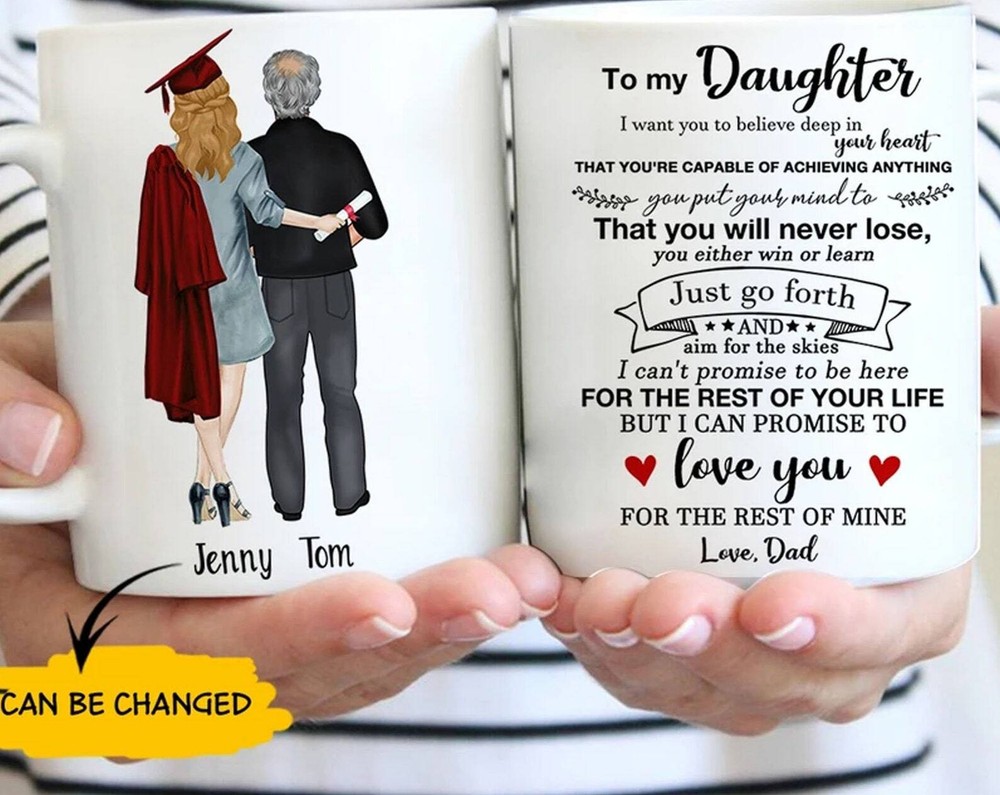 Jenny Tom
CAN BE CHANGED
To my Daughter
I want you to believe deep in
your heart
THAT YOU'RE CAPABLE OF ACHIEVING ANYTHING
you put your mind to
That you will never lose,
you either win or learn
Just go forth
AND
aim for the skies
I can't promise to be here
FOR THE REST OF YOUR LIFE
BUT I CAN PROMISE TO
love you
FOR THE REST OF MINE
Love, Dad